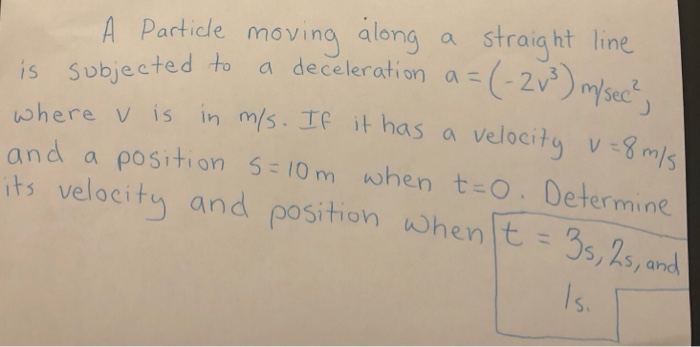 A Particle moving along a straight line
is subjected to a deceleration a = (-2v³) m/sec²,
where v is in m/s. If it has a velocity v=8 m/s
and a position s=10m when t=0. Determine
its velocity and position when t = 3s, 2s, and
1s.